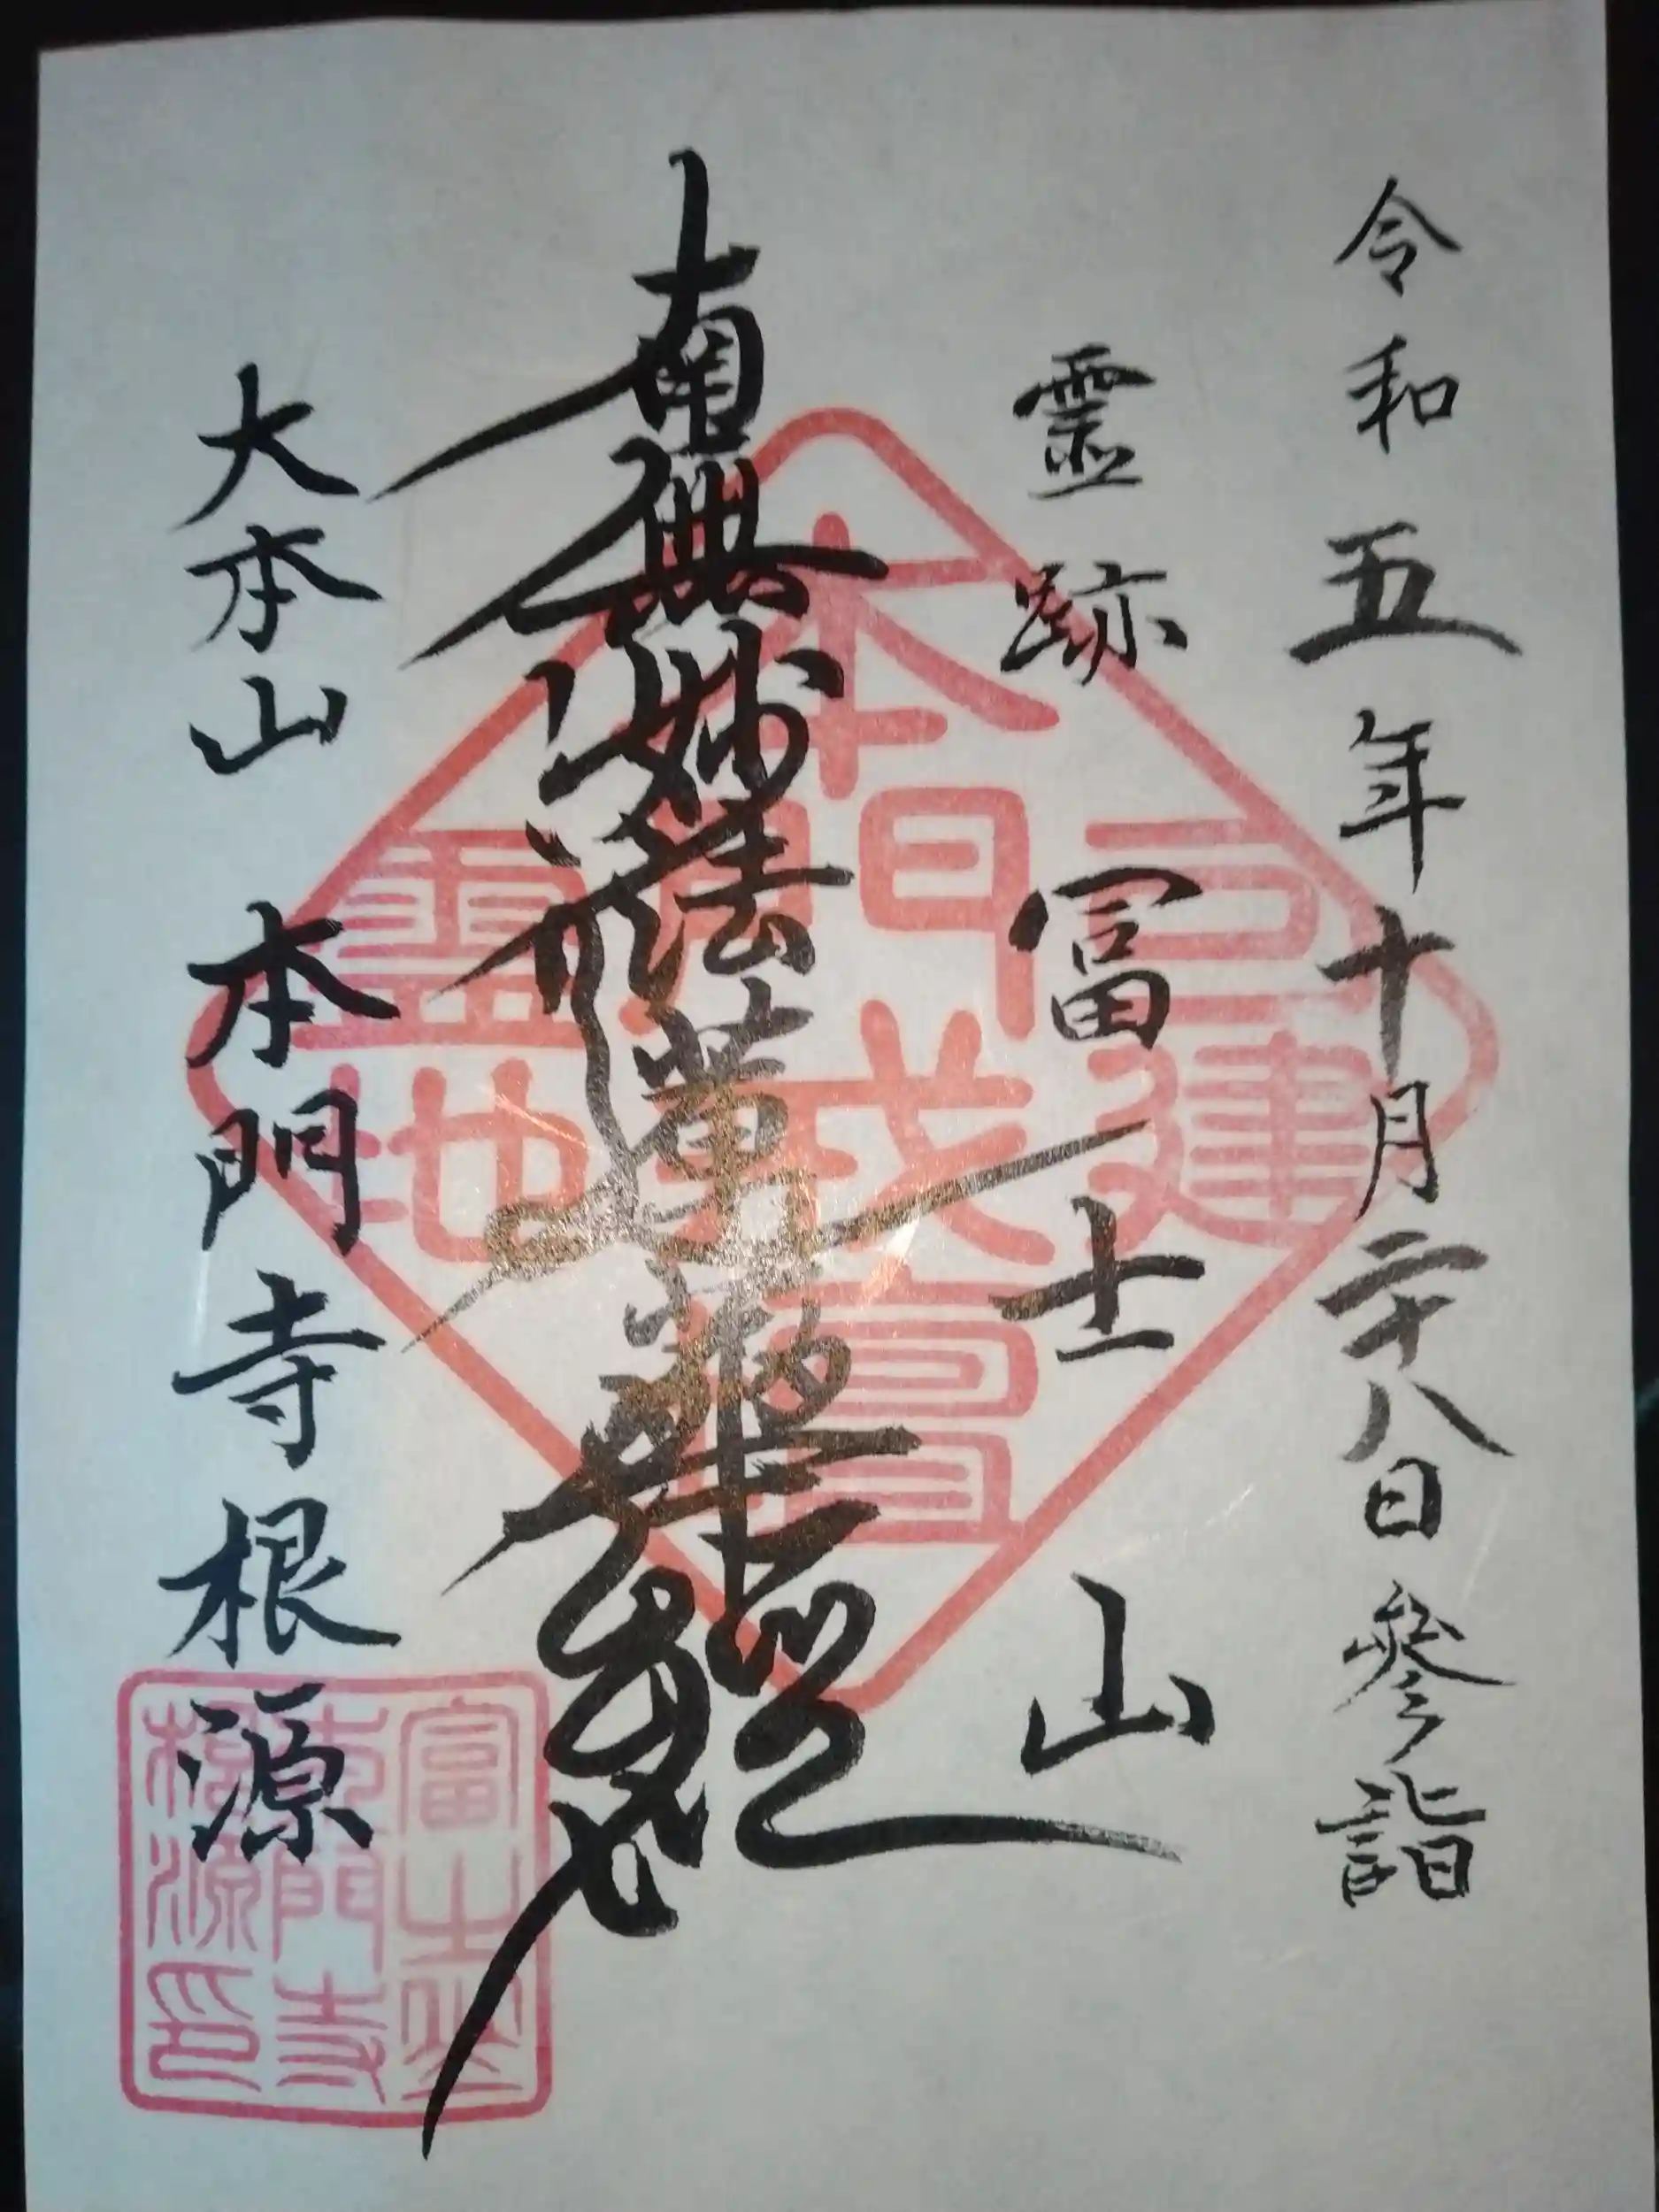 令和五年十月二十八日参詣
霊跡 富士山
南無妙法蓮華経
大本山 本門寺根源
富士山
本門寺
根源印